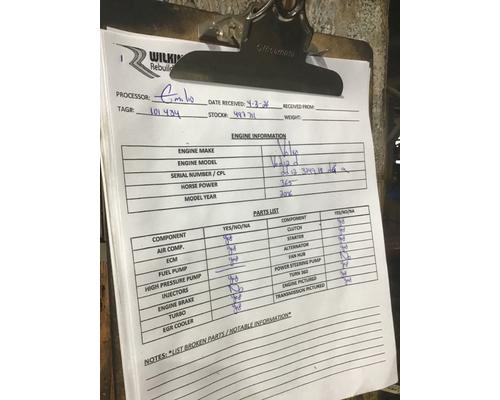 Officemate
1 WILKIN
Rebuild
PROCESSOR: Emilio DATE RECEIVED: 4-3-24 RECEIVED FROM:
TAG#: 101434 STOCK#: 497711 WEIGHT:
ENGINE INFORMATION
ENGINE MAKE Volvo
ENGINE MODEL Ved12 d
SERIAL NUMBER / CPL
HORSE POWER 365
MODEL YEAR 2006
PARTS LIST
COMPONENT YES/NO/NA COMPONENT YES/NO/NA
AIR COMP. yes CLUTCH yes
ECM yes STARTER yes
FUEL PUMP yes ALTERNATOR yes
HIGH PRESSURE PUMP FAN HUB yes
INJECTORS yes POWER STEERING PUMP No
ENGINE BRAKE No TURN 360 yes
TURBO yes ENGINE PICTURED yes
EGR COOLER yes TRANSMISSION PICTURED
NOTES: *LIST BROKEN PARTS / NOTABLE INFORMATION*